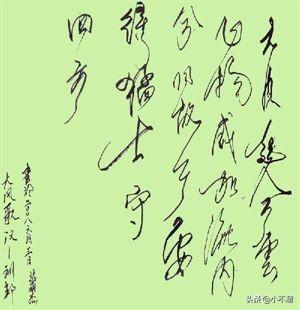 大风起兮雲
飞扬威加海内
兮归故乡安
得猛士守
四方
大风歌 汉·刘邦
头条